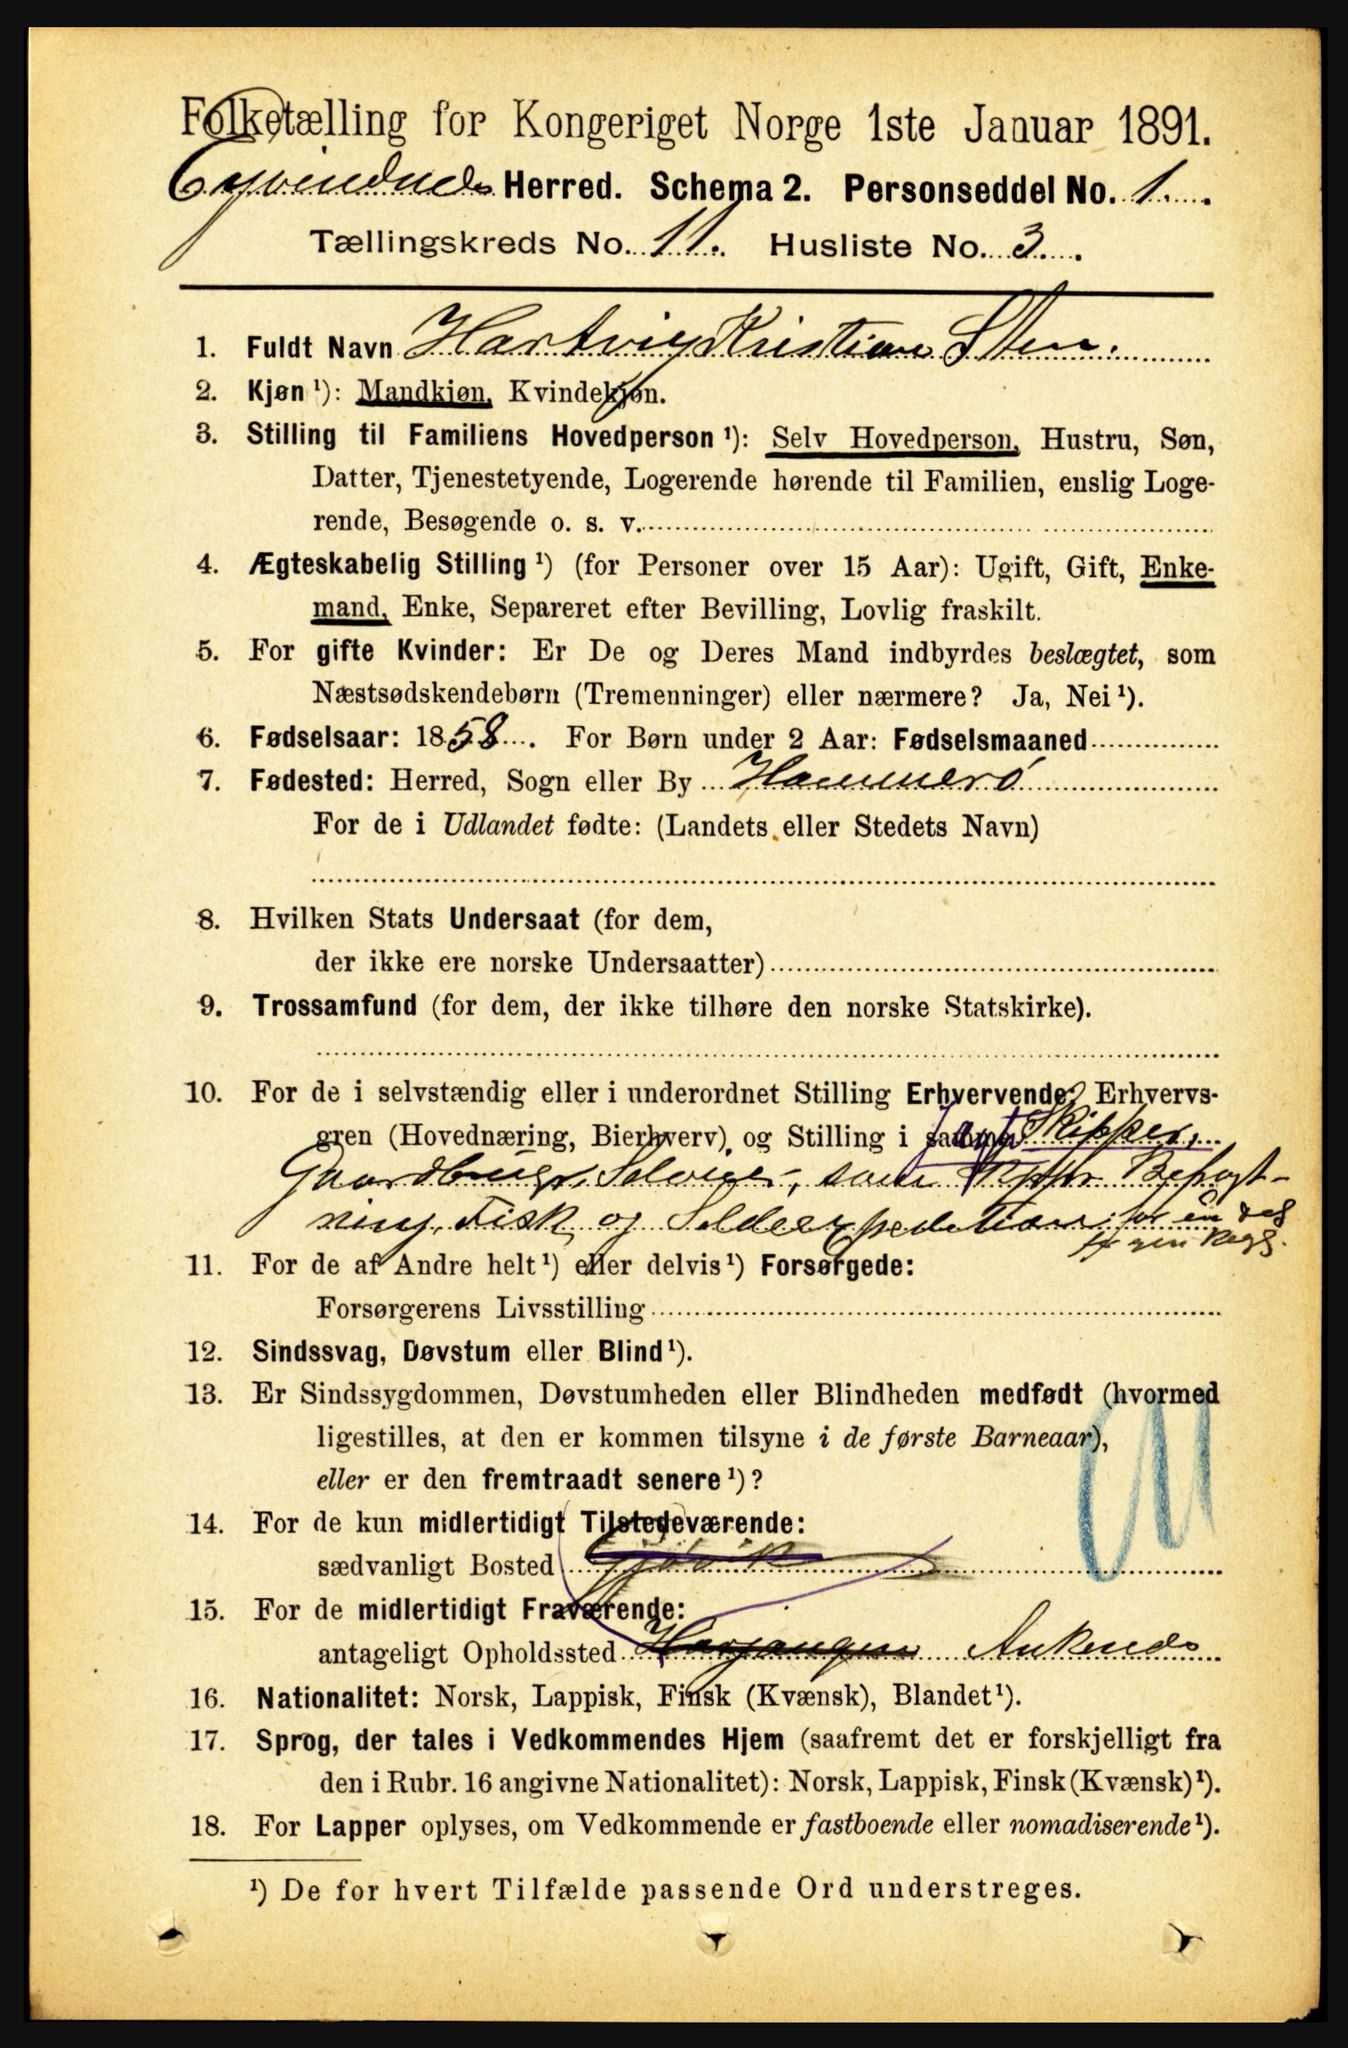 Folketælling for Kongeriget Norge 1ste Januar 1891.
Herred. Schema 2. Personseddel No. 1.
Tællingskreds No. 11. Husliste No. 3.
1. Fuldt Navn Hartvig Kristian Sten.
2. Kjøn ¹): Mandkjøn, Kvindekjøn.
3. Stilling til Familiens Hovedperson ¹): Selv Hovedperson, Hustru, Søn,
Datter, Tjenestetyende, Logerende hørende til Familien, enslig Loge-
rende, Besøgende o. s. v.
4. Ægteskabelig Stilling ¹) (for Personer over 15 Aar): Ugift, Gift, Enke-
mand, Enke, Separeret efter Bevilling, Lovlig fraskilt.
5. For gifte Kvinder: Er De og Deres Mand indbyrdes beslægtet, som
Næstsødskendebørn (Tremenninger) eller nærmere? Ja, Nei ¹).
6. Fødselsaar: 1858. For Børn under 2 Aar: Fødselsmaaned
7. Fødested: Herred, Sogn eller By Hammerø
For de i Udlandet fødte: (Landets eller Stedets Navn)
8. Hvilken Stats Undersaat (for dem,
der ikke ere norske Undersaatter)
9. Trossamfund (for dem, der ikke tilhøre den norske Statskirke).
10. For de i selvstændig eller i underordnet Stilling Erhvervende: Erhvervs-
gren (Hovednæring, Bierhverv) og Stilling i samme Jagt Skipper,
Gaardbruger, Selveier, samt
Fisk og Sildeexpedition for en del
for egen Regg.
11. For de af Andre helt ¹) eller delvis ¹) Forsørgede:
Forsørgerens Livsstilling
12. Sindssvag, Døvstum eller Blind ¹).
13. Er Sindssygdommen, Døvstumheden eller Blindheden medfødt (hvormed
ligestilles, at den er kommen tilsyne i de første Barneaar),
eller er den fremtraadt senere ¹)?
14. For de kun midlertidigt Tilstedeværende:
sædvanligt Bosted Gjøvik
15. For de midlertidigt Fraværende:
antageligt Opholdssted Herjangen Ankenes
16. Nationalitet: Norsk, Lappisk, Finsk (Kvænsk), Blandet ¹).
17. Sprog, der tales i Vedkommendes Hjem (saafremt det er forskjelligt fra
den i Rubr. 16 angivne Nationalitet): Norsk, Lappisk, Finsk (Kvænsk) ¹).
18. For Lapper oplyses, om Vedkommende er fastboende eller nomadiserende ¹).
¹) De for hvert Tilfælde passende Ord understreges.